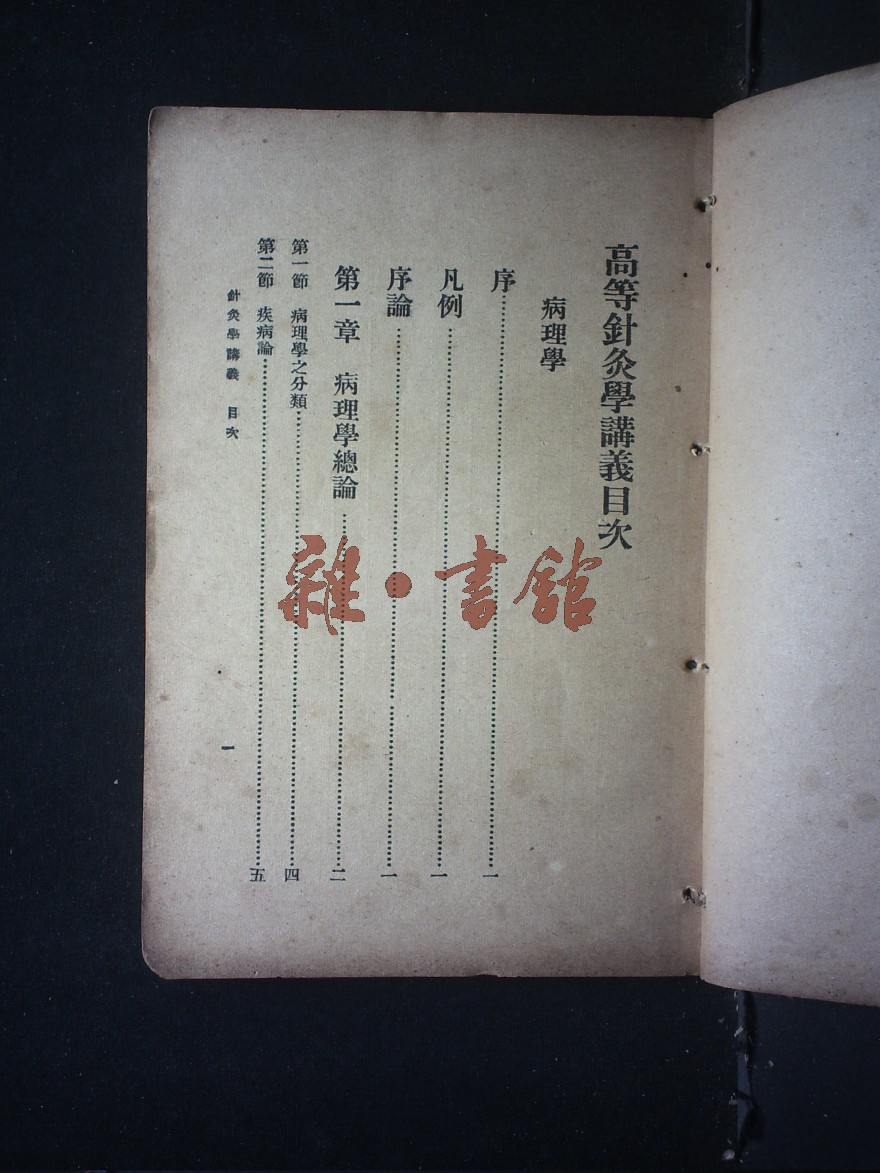 高等針灸學講義目次
病理學
序……一
凡例……一
序論……一
第一章 病理學總論……二
第一節 病理學之分類……四
第二節 疾病論……五
針灸學講義 目次
一
雜·書館